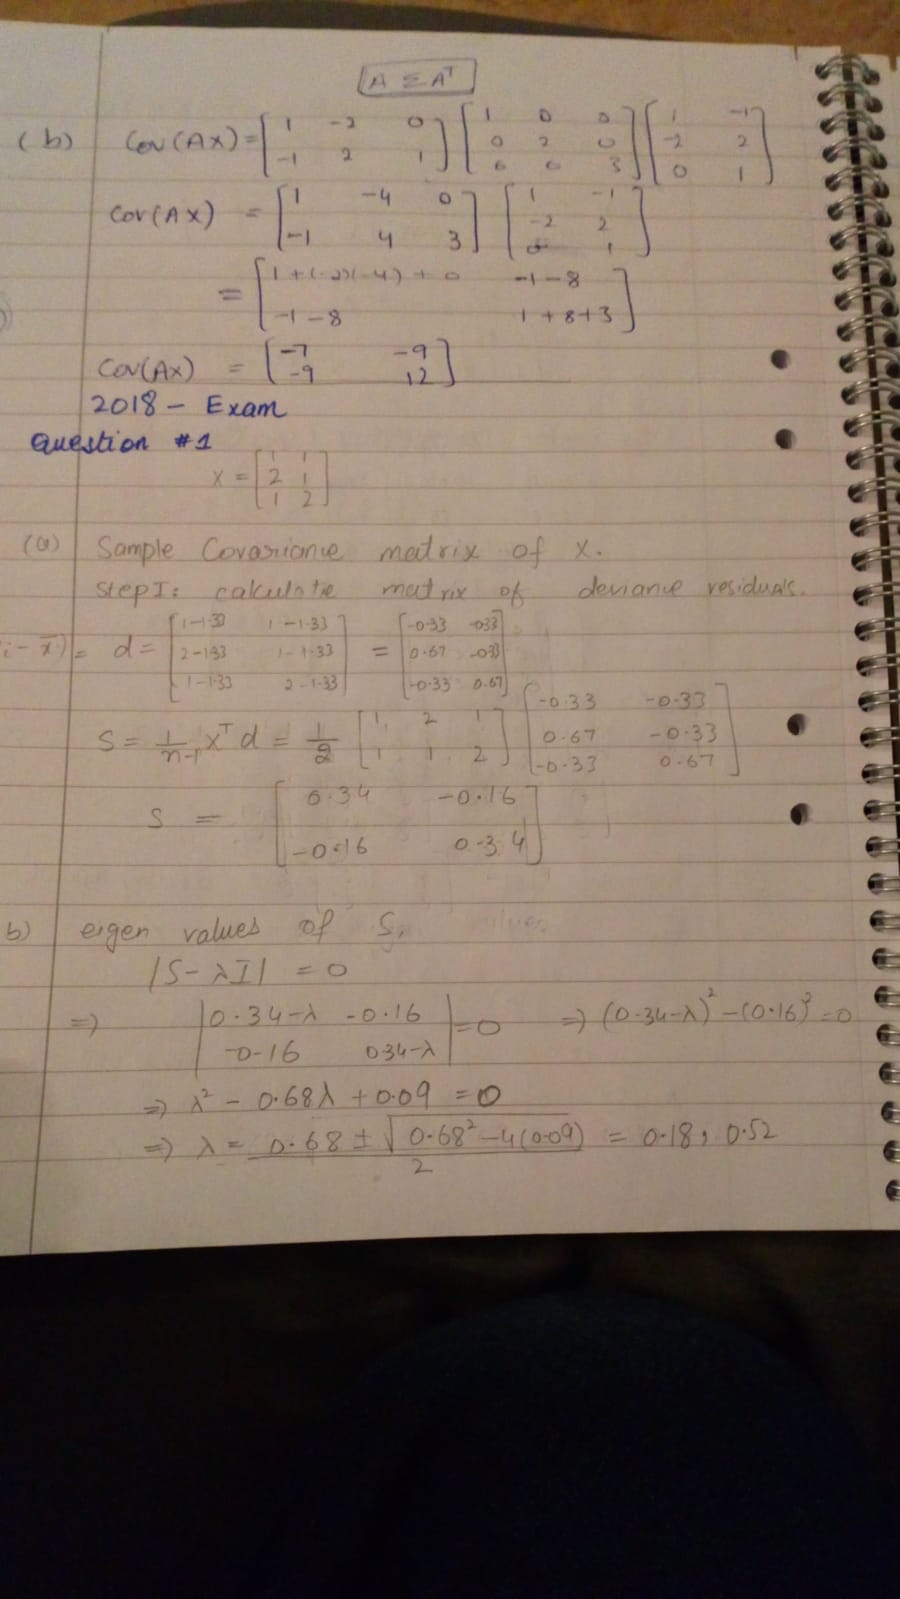 A Σ Aᵀ
(b) Cov(AX) = [1 -2 0; -1 2 1] [1 0 0; 0 2 0; 0 0 3] [1 -1; -2 2; 0 1]
Cov(AX) = [1 -4 0; -1 4 3] [1 -1; -2 2; 0 1]
= [1+(-2)(-4)+0 -1-8; -1-8 1+8+3]
Cov(Ax) = [-7 -9; -9 12]
2018 - Exam
Question #1
X = [1 1; 2 1; 1 2]
(a) Sample Covariance matrix of X.
Step I: calculate matrix of deviance residuals.
i - x̄) = d = [1-1.33 1-1.33; 2-1.33 1-1.33; 1-1.33 2-1.33] = [-0.33 -0.33; 0.67 -0.33; -0.33 0.67]
S = 1/(n-1) Xᵀ d = 1/2 [1 2 1; 1 1 2] [-0.33 -0.33; 0.67 -0.33; -0.33 0.67]
S = [0.34 -0.16; -0.16 0.34]
b) eigen values of S,
|S-λI| = 0
=> |0.34-λ -0.16; -0.16 0.34-λ| = 0 => (0.34-λ)² - (0.16)² = 0
=> λ² - 0.68λ + 0.09 = 0
=> λ = (0.68 ± √(0.68² - 4(0.09)))/2 = 0.18, 0.52